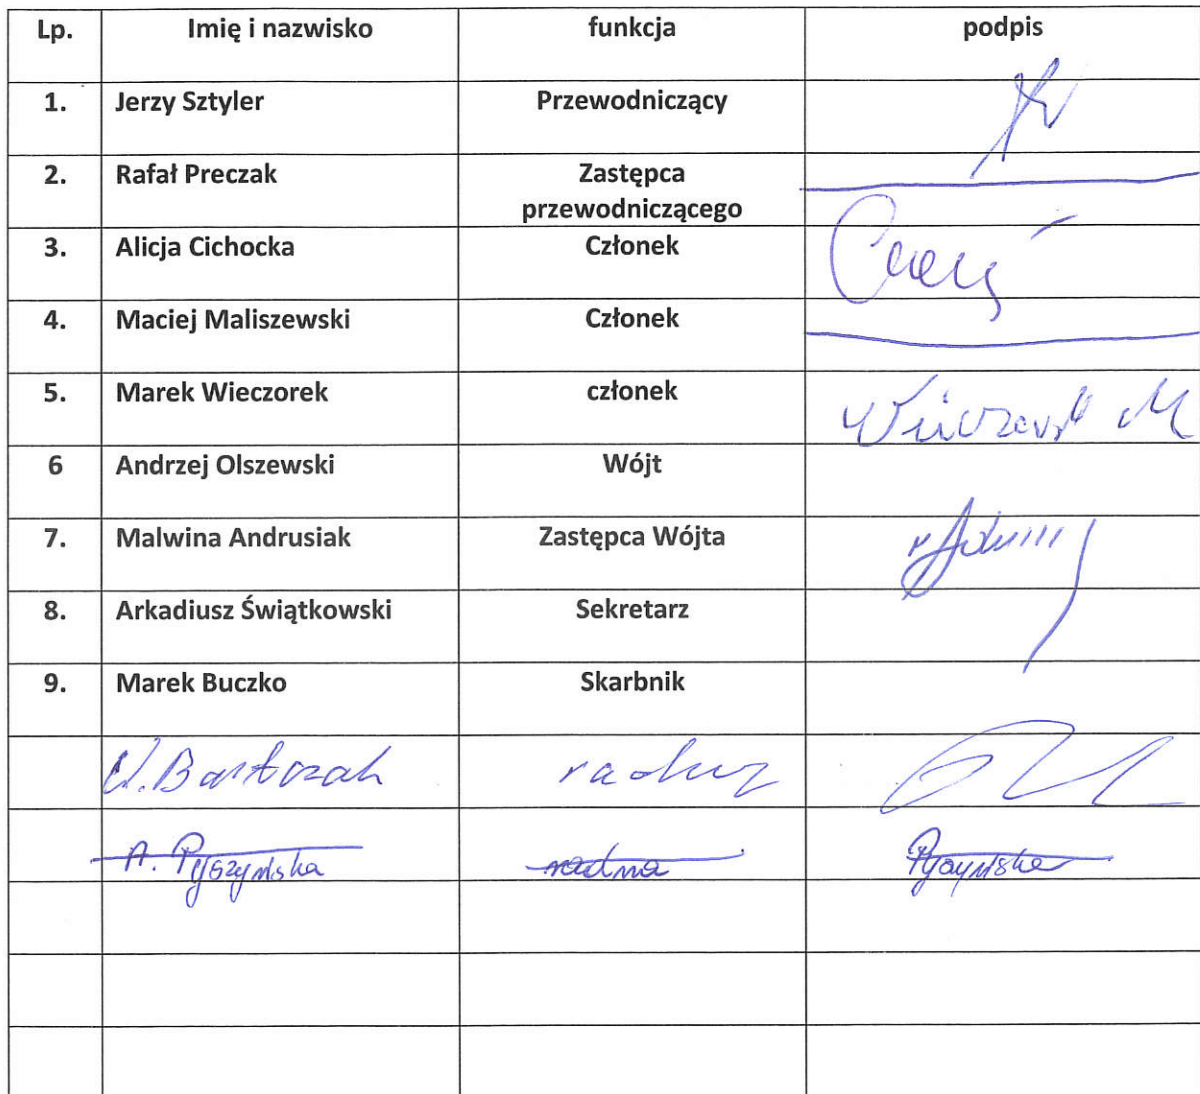 Lp. Imię i nazwisko funkcja podpis
1. Jerzy Sztyler Przewodniczący
2. Rafał Preczak Zastępca
przewodniczącego
3. Alicja Cichocka Członek
4. Maciej Maliszewski Członek
5. Marek Wieczorek członek Wieczorek M
6 Andrzej Olszewski Wójt
7. Malwina Andrusiak Zastępca Wójta
8. Arkadiusz Świątkowski Sekretarz
9. Marek Buczko Skarbnik
W. Bartczak radny
A. radna